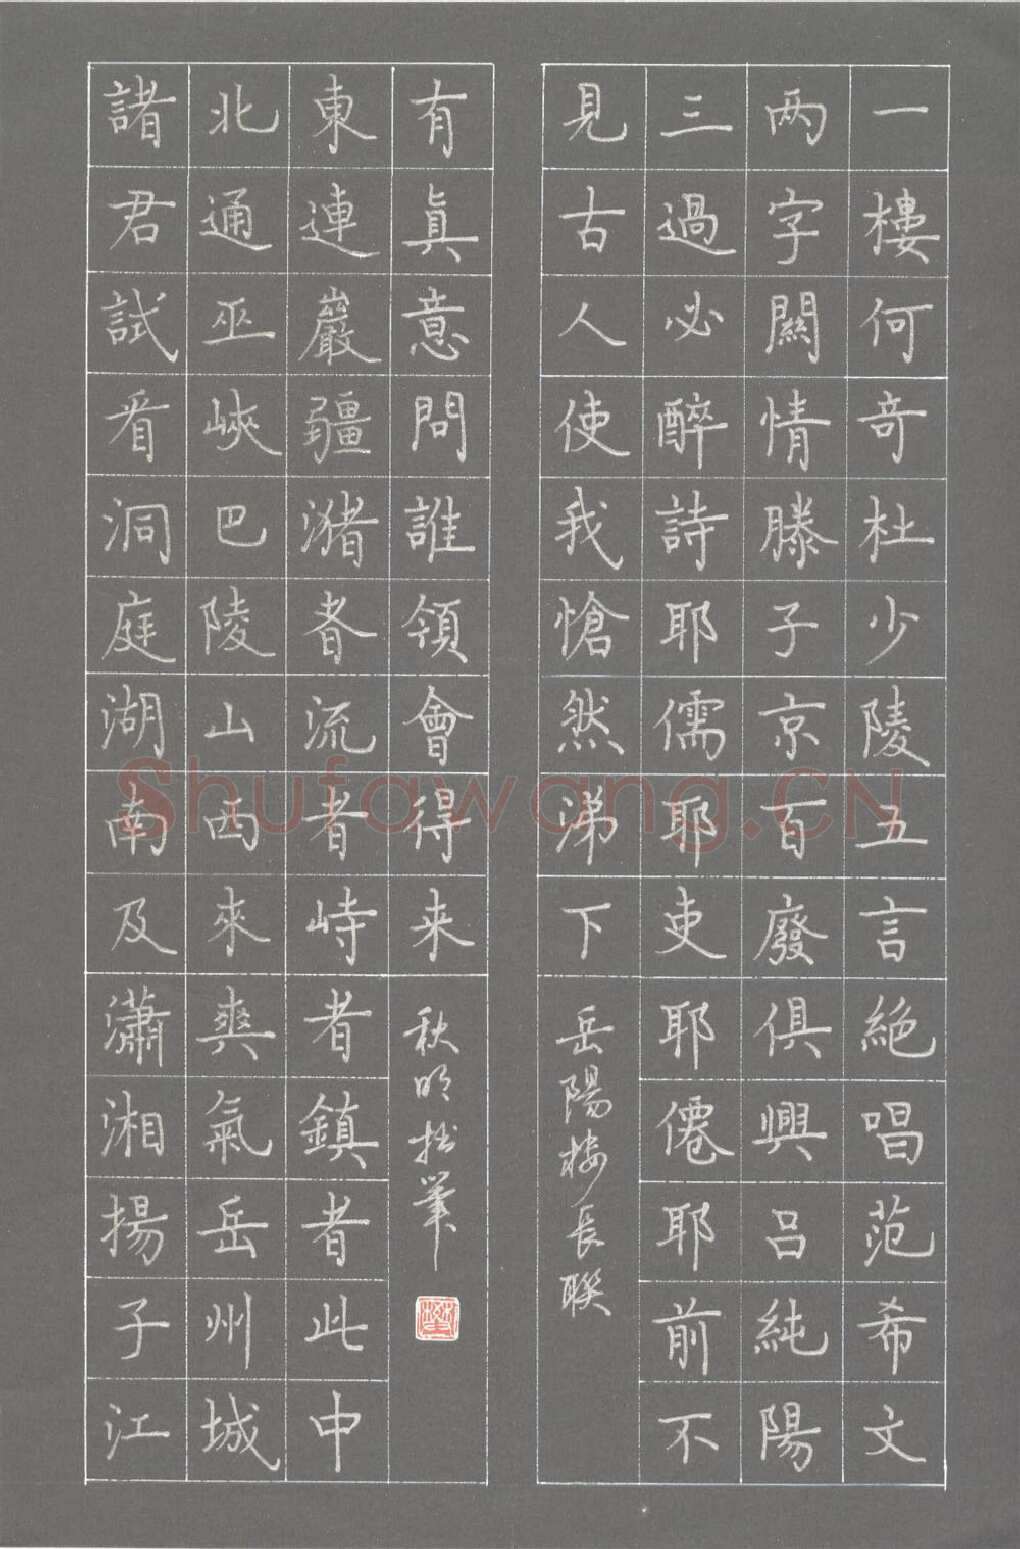 一樓何奇杜少陵五言絕唱范希文
两字關情滕子京百廢俱興呂純陽
三過必醉詩耶儒耶吏耶僊耶前不
見古人使我愴然涕下
岳陽樓長聯
諸君試看洞庭湖南及瀟湘揚子江
北通巫峽巴陵山西來爽氣岳州城
東連巖疆瀦者流者峙者鎮者此中
有眞意問誰領會得来
秋明拙筆
Shufawang.CN